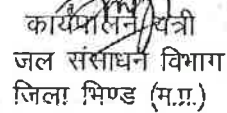 कार्यपालन यंत्री
जल संसाधन विभाग
जिला भिण्ड (म.प्र.)